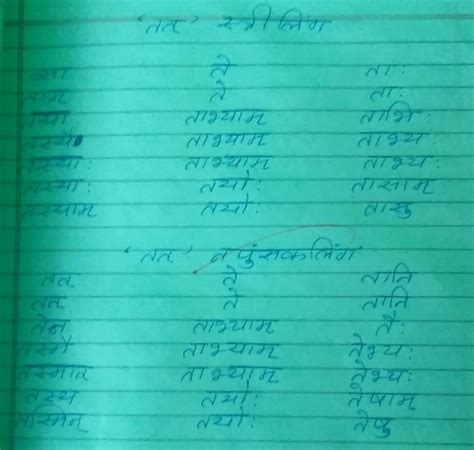 'तत्' स्त्रीलिंग
सा ते ताः
ताम् ते ताः
तया ताभ्याम् ताभि
तस्यै ताभ्याम् ताभ्य:
तस्या: ताभ्याम् ताभ्य:
तस्या: तयो: तासाम्
तस्याम् तयो: तासु
'तत्' नपुंसकलिंग
तत् ते तानि
तत् ते तानि
तेन ताभ्याम् तै:
तस्मै ताभ्याम् तेभ्य:
तस्मात् ताभ्याम् तेभ्य:
तस्य तयो: तेषाम्
तस्मिन् तयो: तेषु